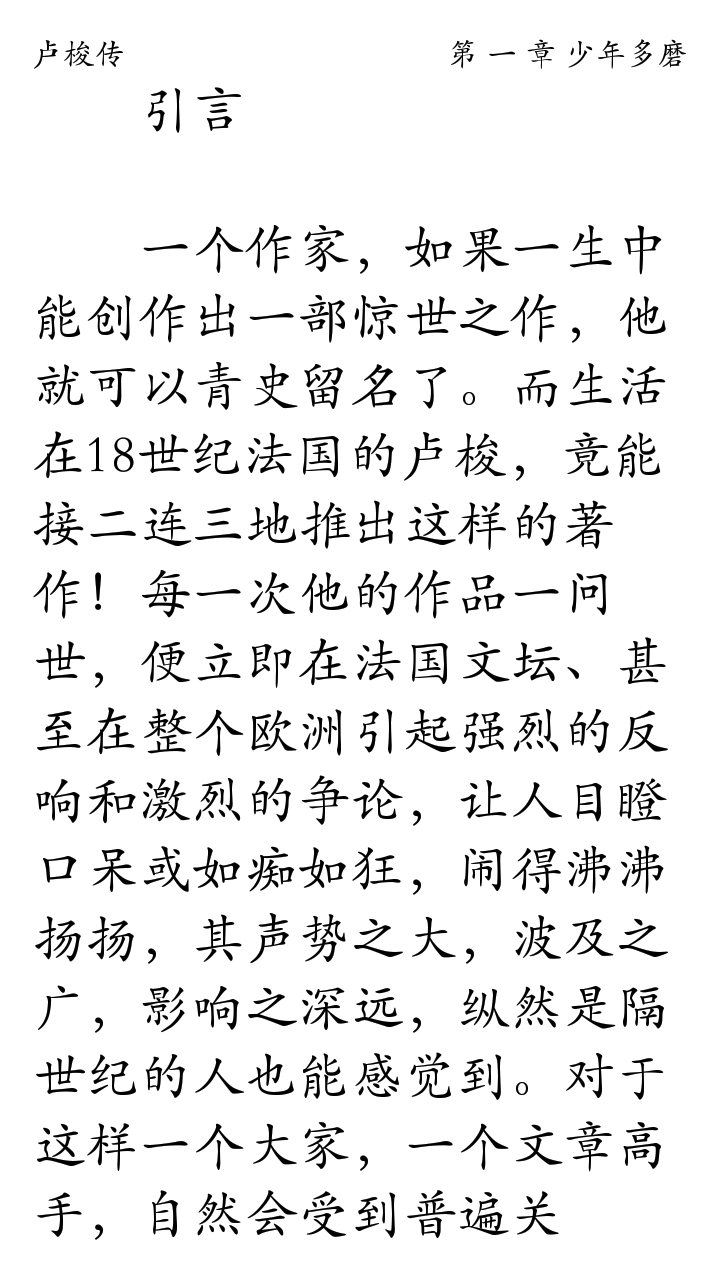 卢梭传
第一章 少年多磨
引言
一个作家，如果一生中
能创作出一部惊世之作，他
就可以青史留名了。而生活
在18世纪法国的卢梭，竟能
接二连三地推出这样的著
作！每一次他的作品一问
世，便立即在法国文坛、甚
至在整个欧洲引起强烈的反
响和激烈的争论，让人目瞪
口呆或如痴如狂，闹得沸沸
扬扬，其声势之大，波及之
广，影响之深远，纵然是隔
世纪的人也能感觉到。对于
这样一个大家，一个文章高
手，自然会受到普遍关